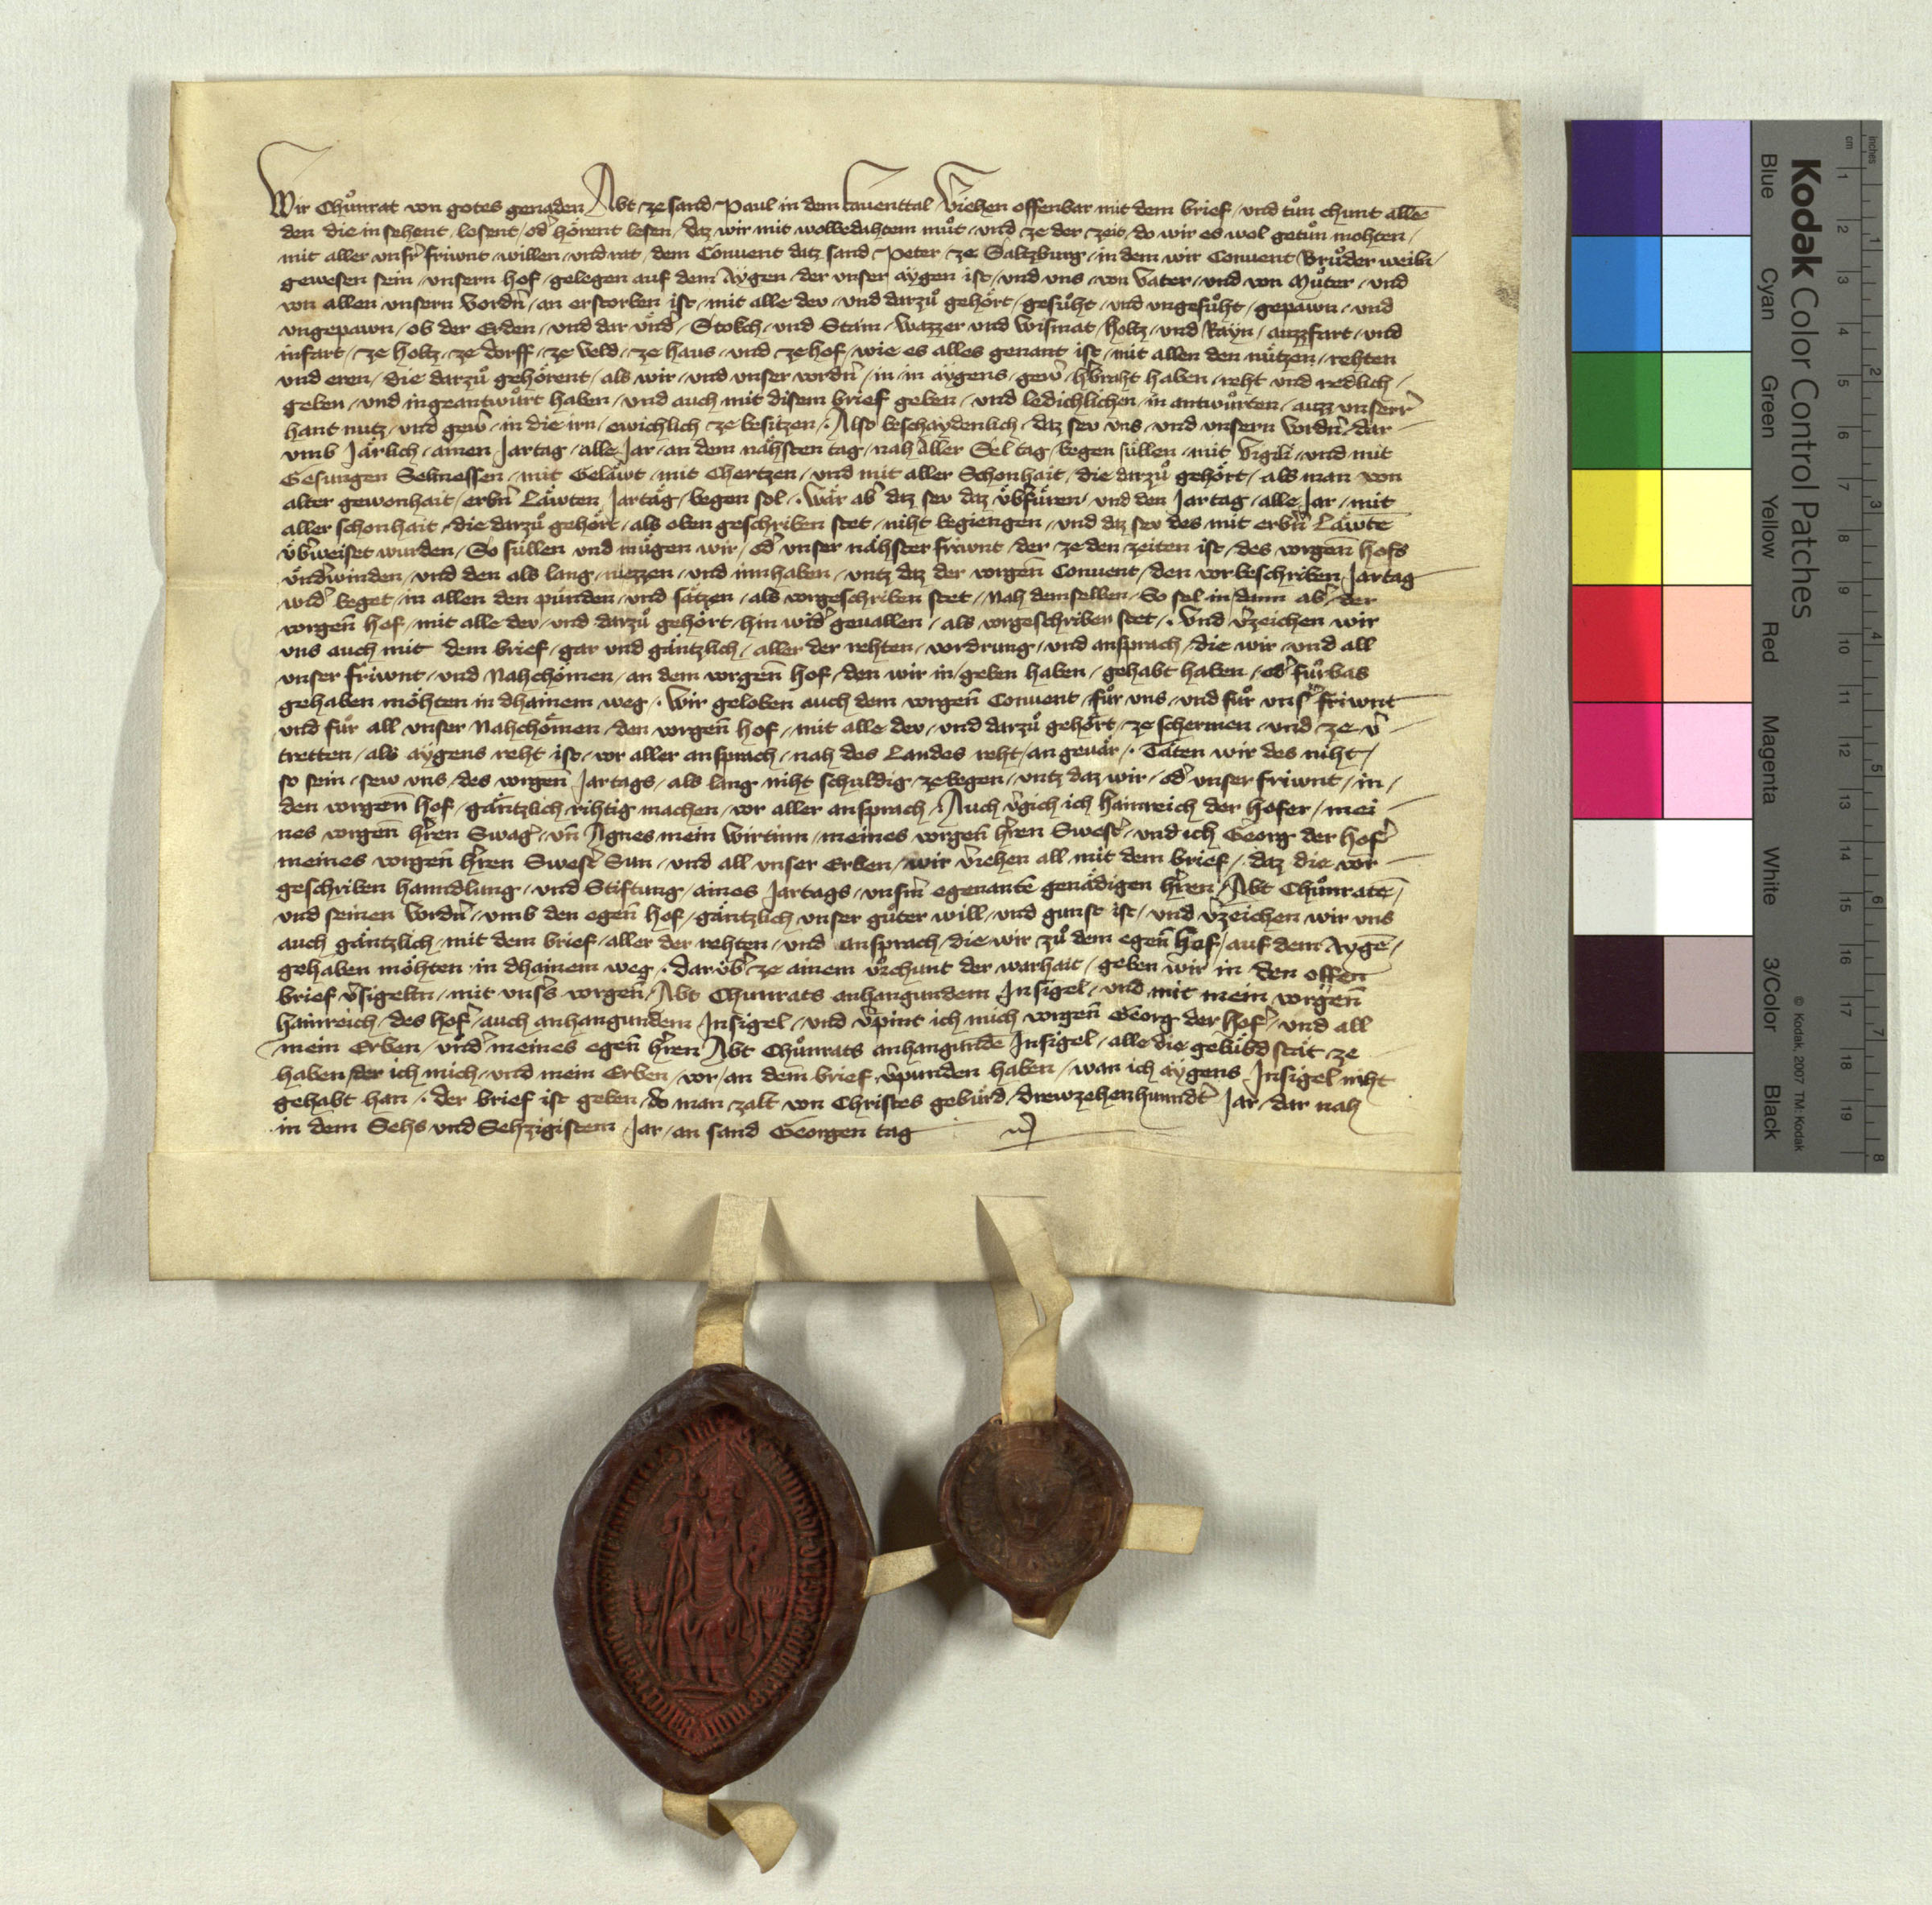 Wir Chůnrat von gotes genaden Abt ze sand Paul in dem Lauenttal Veriehen offenbar mit dem brief / und tůn chunt allē
den die in sehent / lesent / od̓ hörent lesen / daz wir mit wolbedahtem můt / und ze der zeit / do wir es wol getůn mohten /
mit aller unsr̓ friwnt / willen / und rat / dem Convent datz sand Peter / ze Saltzburg / in dem wir Convent Brůder weiln /
gewesen sein / unsern hof / gelegen auf dem Aygen / der unser aygen ist / und uns / von Vater / und von Můter / und
von allen unsern Vordn̓ / an erstorben ist / mit alle dev / und darzů gehört / gesůht / und ungesůht / gepawn / und
ungepawn / ob der Erden / und dar und̓ / Stokch / und Stam / wazzer und wismat / holtz / und Rayn / auzzfart / und
infart / ze holtz / ze dorff / ze veld / ze haus / und ze hof / wie es alles genant ist / mit allen den nützen / rehten
und eren / die darzů gehörent / als wir / und unser vordn̓ / in in aygens / gew̓ / h̓braht haben / reht und redlich /
geben / und ingeantwürt haben / und auch mit disem brief geben / und ledichlichen / in antwürten / auzz unserr̓
hant nutz / und gew̓ / in die irn / ewichlich ze besitzen / Also beschaydenlich / daz sev uns / und unsern Vordn̓ / dar
umb Järlich / ainen Jartag / alle Jar / an dem nähsten tag / nah Aller Sel tag / begen süllen / mit Vigili / und mit
Gesungen Selmessen / mit Geläwt / mit Chertzen / und mit aller Schonhait / die darzů gehört / als man von
alter gewonhait / erbn̓ Läwten / Jartäg / begen sol / wär ab̓ daz sev daz üb̓füren / und den Jartag / alle Jar / mit
aller schonhait / die darzů gehört / als oben geschriben stet / niht begiengen / und daz sev des mit erbn̓ Läwtē
üb̓weiset wurden / So süllen und mügen wir / od̓ unser nähster friwnt / der ze den zeiten ist / des vorgen̄ hofs
und̓winden / und den als lang / niezzen / und innhaben / untz daz der vorgen̄ Convent / den vorbeschriben Jartag
wid̓ beget / in allen den pünden / und sätzen / als vorgeschriben stet / Nah demselben / So sol in dann ab̓ / der
vorgen̄ hof / mit alle dev / und darzů gehört / hin wid̓ geuallen / als vorgeschriben stet / Und v̓zeichen wir
uns auch mit dem brief / gar und gäntzlich / aller der rehten / vordrung / und ansprach / die wir / und all
unser friwnt / und Nahchömen / an dem vorgen̄ hof / den wir in / geben haben / gehabt haben / od̓ fürbas
gehaben möhten in dhainem weg / Wir geloben auch dem vorgen̄ Convent / für uns / und für unsr̓ friwnt
und für all unser Nahchömen / den vorgen̄ hof / mit alle dev / und darzů gehört / ze schermen / und / ze v̓
tretten / als aygens reht ist / vor aller ansprach / nah des Landes reht / an geuär / Täten wir des niht /
so sein / sew uns / des vorgen̄ Jartags / als lang niht schuldig / ze begen / untz daz wir / od̓ unser friwnt / in /
den vorgen̄ hof / gäntzlich rihtig machen / vor aller ansprach / Auch v̓gich ich hainreich der hofer / mei
nes vorgen̄ hr̓en Swag̓ / un̄ Agnes mein Wirtinn / meines vorgen̄ hr̓en Swest̓ / und ich Georg der hof̓
meines vorgen̄ hr̓en Swest̓ Sun / und all unser Erben / wir v̓iehen all mit dem brief / daz die vor
geschriben hanndlung / und Stiftung / aines Jartags / unsm̓ egenantē genädigen hr̓en / Abt Chůnratē /
und seinen Vordn̓ / umb den egen̄ hof / gäntzlich unser gůter will / und gunst ist / und v̓zeichen wir uns
auch gäntzlich / mit dem brief / aller der rehten / und ansprach / die wir zů dem egen̄ hof / auf dem Aygē /
gehaben möhten in dhainem weg / darüb̓ ze ainem urchunt der warhait / geben wir in den offen
brief v̓sigeltn / mit uns̓s vorgen̄ / Abt Chunrats anhangundem Insigel / und mit mein vorgen̄
hainreich / des hof̓ / auch anhangundem Insigel / und v̓pint ich mich vorgen̄ Georg der hof̓ / und all
mein Erben / und̓ meines egen̄ hr̓en Abt Chůnrats anhangundē Insigel / alle die gelübd stät ze
haben / der ich mich / und mein Erben / vor / an dem brief v̓punden haben / wan ich aygens Insigel niht
gehabt han / der brief ist geben / do man zalt von Christes gebürd / drewzehenhundt̓ Jar / dar nah
in dem Sehs und Sehzigistem Jar / an sand Georgen tag
Kodak Color Control Patches
Blue Cyan Green Yellow Red Magenta White 3/Color Black
© Kodak, 2007 TM: Kodak
cm 1 2 3 4 5 6 7 8 9 10 11 12 13 14 15 16 17 18 19
inches 1 2 3 4 5 6 7 8